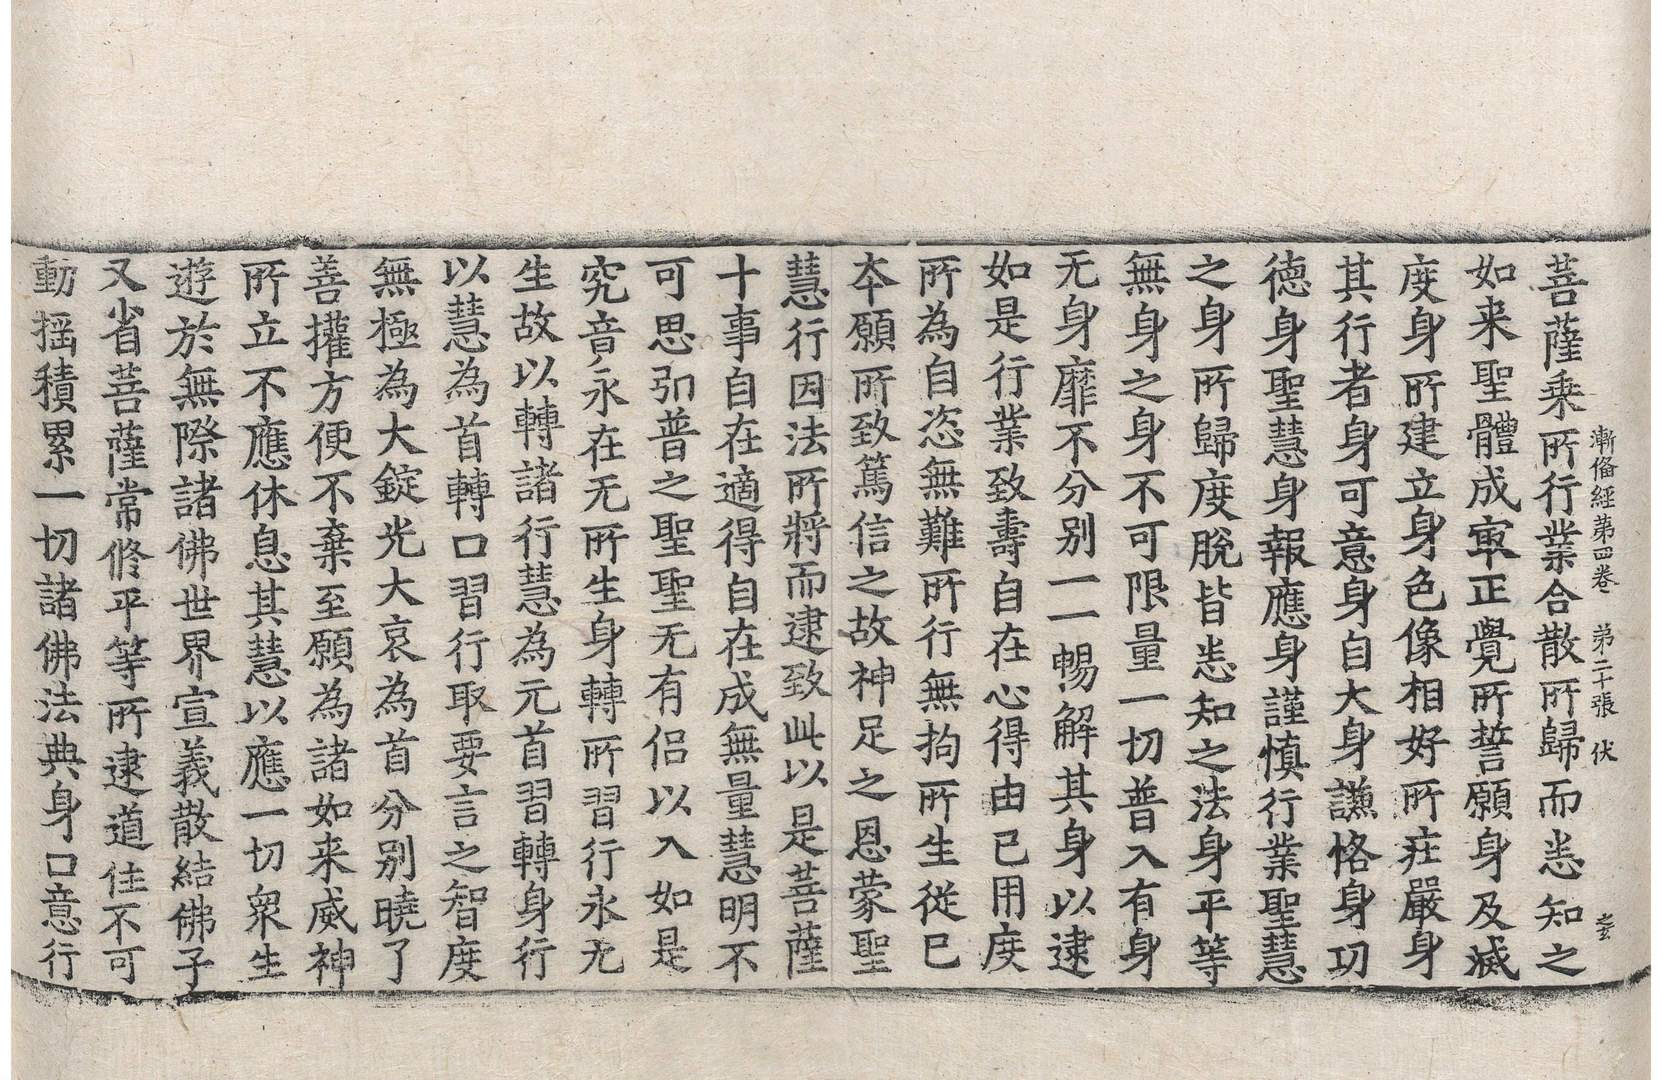 漸俻經第四卷　第二十張　伏
菩薩乗所行業合散所歸而悉知之
如来聖體成㝡正覺所誓願身及滅
度身所建立身色像相好所莊嚴身
其行者身可意身自大身謙恪身功
德身聖慧身報應身謹慎行業聖慧
之身所歸度脫皆悉知之法身平等
無身之身不可限量一切普入有身
无身靡不分别一一暢解其身以逮
如是行業致壽自在心得由已用度
所為自恣無難所行無拘所生從已
本願所致篤信之故神足之恩蒙聖
慧行因法所將而逮致此以是菩薩
十事自在適得自在成無量慧明不
可思引普之聖聖无有侣以入如是
究音永在无所生身轉所習行永无
生故以轉諸行慧為元首習轉身行
以慧為首轉口習行取要言之智度
無極為大錠光大哀為首分别曉了
善攉方便不棄至願為諸如来威神
所立不應休息其慧以應一切衆生
遊於無際諸佛世界宣義散結佛子
又省菩薩常修平等所逮道住不可
動揺積累一切諸佛法典身口意行